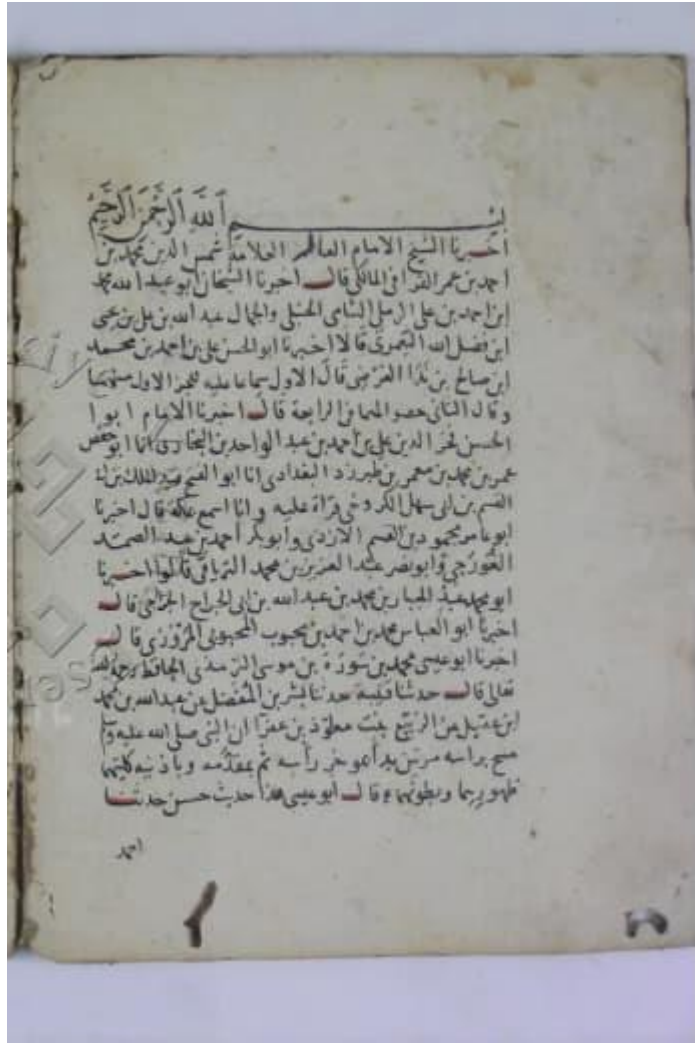 بسم الله الرحمن الرحيم
اخبرنا الشيخ الامام العالم العلامة شمس الدين محمد بن
احمد بن عمر القرافي المالكي قال اخبرنا الشيخان ابو عبد الله محمد
ابن احمد بن علي الرملي الشامي الحنبلي والجمال عبد الله بن علي بن يحيى
ابن فضل الله العمري قالا اخبرنا ابو الحسن علي بن احمد بن محمد
ابن صالح بن العرضي قال الاول سماعا عليه للجزء الاول منتهيا
وقال الثاني حضورا في الرابعة قال اخبرنا الامام ابوا
الحسن فخر الدين علي بن احمد بن عبد الواحد بن البخاري انا ابو حفص
عمر بن محمد بن معمر بن طبرزد البغدادي انا ابو الفتح عبد الملك بن
القسم بن ابي سهل الكروخي قراة عليه وانا اسمع قال اخبرنا
ابو عامر محمود بن القسم الازدي وابو بكر احمد بن عبد الصمد
الغورجي وابو نصر عبد العزيز بن محمد الترياقي قالوا اخبرنا
ابو محمد عبد الجبار بن محمد بن عبد الله بن ابي الجراح الجراحي قال
اخبرنا ابو العباس محمد بن احمد بن محبوب المحبوبي المروزي قال
اخبرنا ابو عيسى محمد بن سورة بن موسى الترمذي الحافظ رحمه الله
تعالى قال حدثنا قتيبة حدثنا بشر بن المفضل عن عبد الله بن محمد
ابن عقيل عن الربيع بنت معوذ بن عفرا ان النبي صلى الله عليه وسلم
مسح براسه مرتين بدأ بموخر رأسه ثم بمقدمه وباذنيه كلتيهما
ظهورهما وبطونهما وقال ابو عيسى هذا حديث حسن حدثنا